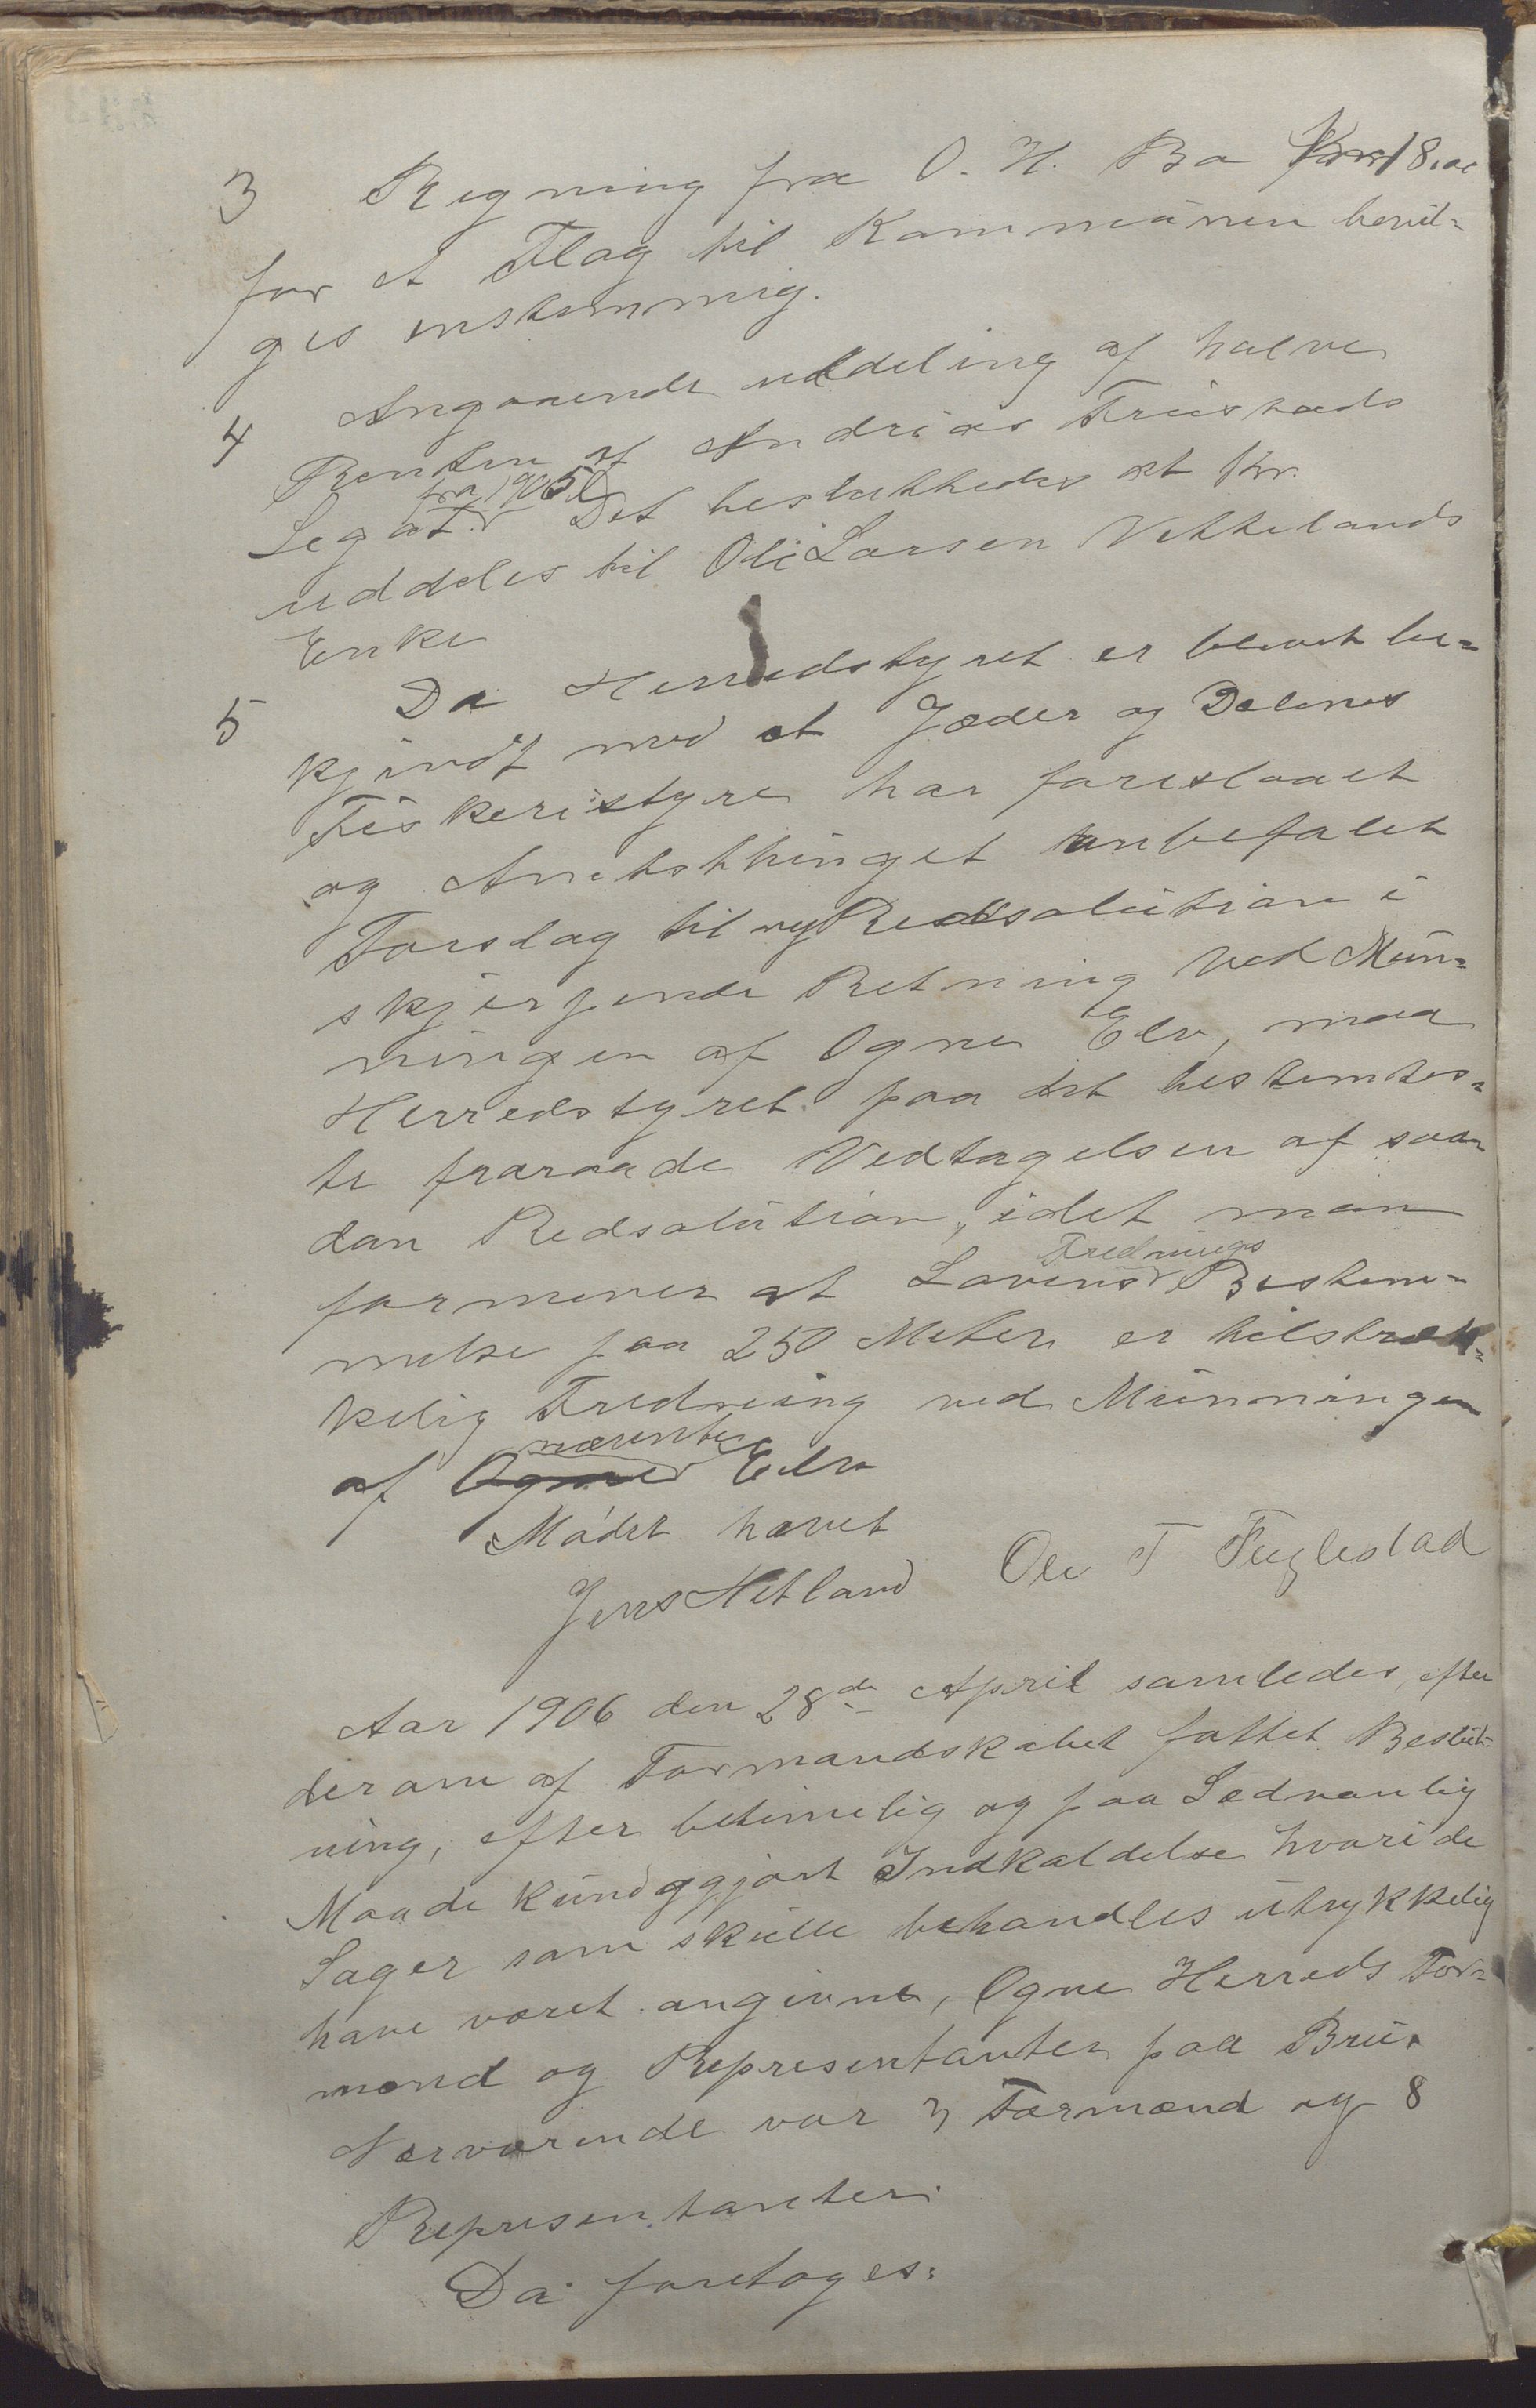 3 Regning fra O. H. Bø Kr 18.00
for et Flag til Kommunen bevil-
ges enstemmig.
4 Angaaende uddeling af halve
Renten af Andreas Fuistads
Legat fra 1905. Det besluttedes at Kr.
uddeles til Ole Larsen Vettelands
Enke
5 Da Herredstyret er blevet be-
kjendt med at Jæder og Dalenes
Fiskeristyre har foreslaaet
og Amtsthinget anbefalet
Forslag til ny Redsolution i
skjærpende Retning ved Mun-
ningen af Ogne Elv, maa
Herredstyret paa det bestemtes-
te fraraade Vedtagelsen af saa-
dan Redsolution, idet man
formener at Lovens Frednings Bestem-
melse paa 250 Meter er tilstræk-
kelig Fredning ved Munningen
af Ogne nævnte Elv
Mødet hævet
Jens Hetland Ole T Fuglestad
Aar 1906 den 28de April samledes, efter
derom af Formandskabet fattet Beslut-
ning, efter betimelig og paa Sædvanlig
Maade kundggjort Indkaldelse hvori de
Sager som skulle behandles utrykkelig
have været angivne, Ogne Herreds For-
mænd og Representanter paa Bru.
Nærværende var 3 Formænd og 8
Representanter.
Da foretoges: